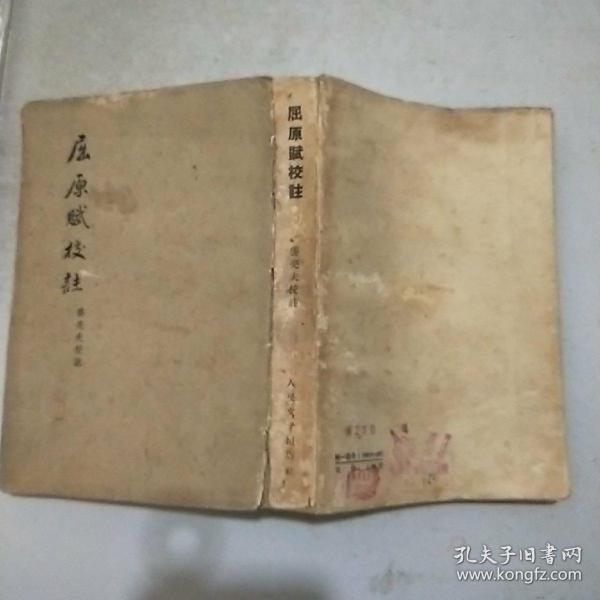 屈原賦校註
姜亮夫校註
屈原賦校註
姜亮夫校註
人民文學出版社
孔夫子旧书网
www.kongfz.com